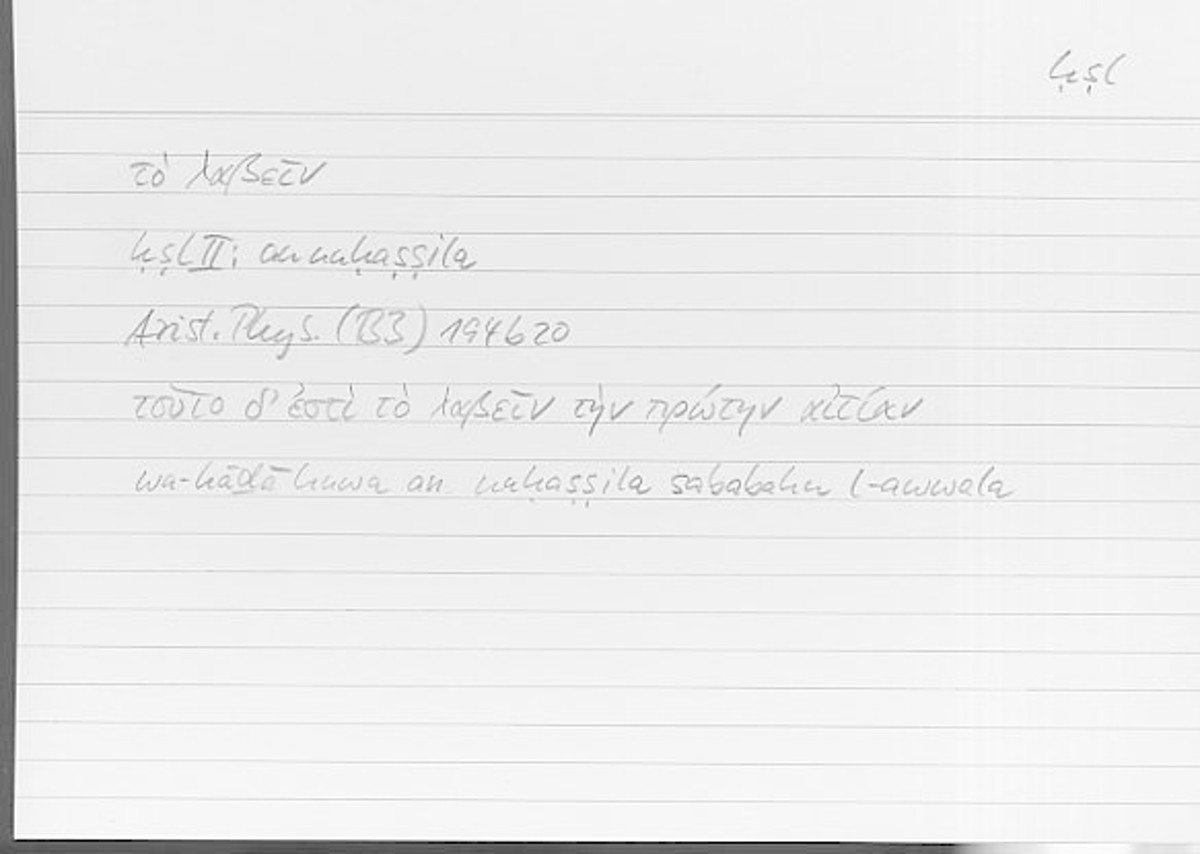 ḥṣl
τὸ λαβεῖν
ḥṣl II: an nuḥaṣṣila
Arist. Phys. (B3) 194b20
τοῦτο δ' ἐστὶ τὸ λαβεῖν τὴν πρώτην αἰτίαν
wa-hāḏā huwa an nuḥaṣṣila sababahu l-awwala